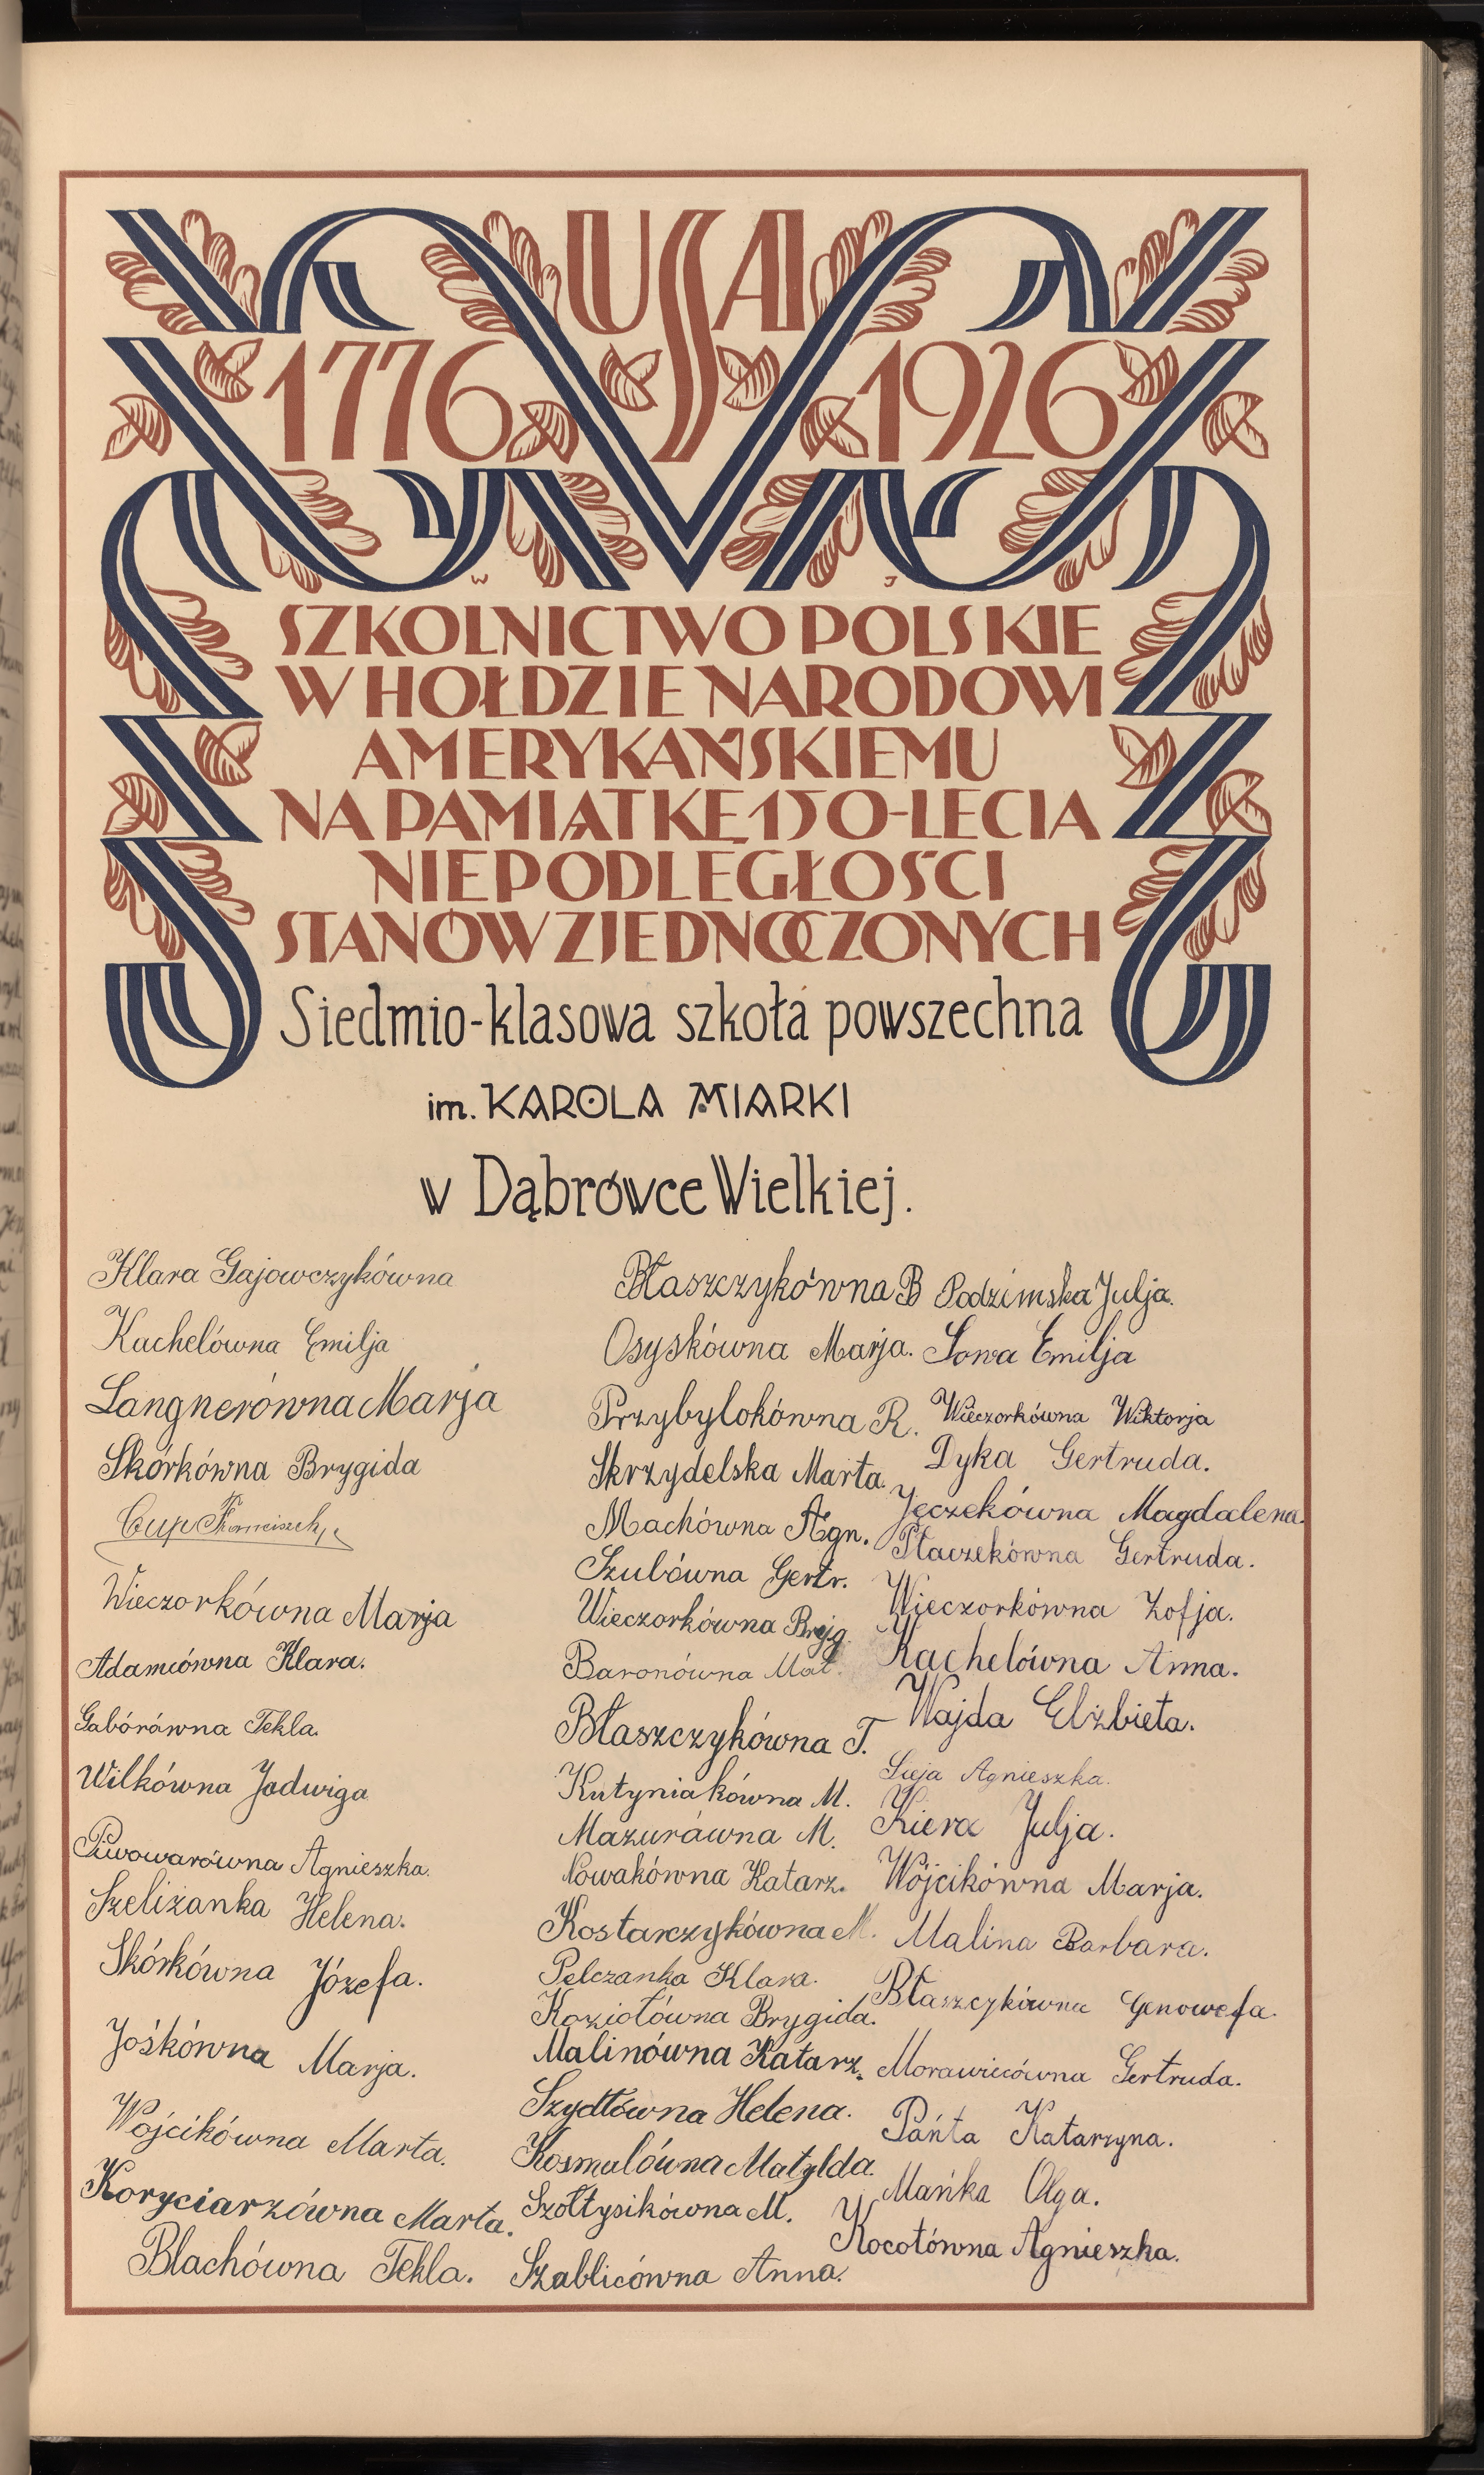 USA
1776 1926
W J
SZKOLNICTWO POLSKIE
W HOŁDZIE NARODOWI
AMERYKAŃSKIEMU
NA PAMIĄTKĘ 150-LECIA
NIEPODLEGŁOŚCI
STANÓW ZJEDNOCZONYCH
Siedmio-klasowa szkoła powszechna
im. KAROLA MIARKI
w Dąbrówce Wielkiej.
Klara Gajowczykówna
Kachelówna Emilja
Langnerówna Marja
Skórkówna Brygida
Cup Franciszek
Wieczorkówna Marja
Adamcówna Klara.
Gabórówna Tekla.
Wilkówna Jadwiga
Piwowarówna Agnieszka.
Szeliżanka Helena.
Skórkówna Józefa.
Jośkówna Marja.
Wójcikówna Marta.
Koryciarzówna Marta.
Blachówna Tekla.
Błaszczykówna B
Osyskówna Marja.
Przybylokówna R.
Skrzydelska Marta.
Machówna Agn.
Szulówna Gertr.
Wieczorkówna Bryg.
Baronówna Mał.
Błaszczykówna T.
Kutyniakówna M.
Mazurówna M.
Nowakówna Katarz.
Kostarczykówna M.
Pelczanka Klara.
Koziołówna Brygida.
Malinówna Katarz.
Szydłówna Helena.
Kosmulówna Matylda.
Szołtysikówna M.
Szablicówna Anna.
Podzimska Julja.
Sowa Emilja
Wieczorkówna Wiktorja
Dyka Gertruda.
Jęczekówna Magdalena.
Płaczekówna Gertruda.
Wieczorkówna Zofja.
Kachelówna Anna.
Wajda Elżbieta.
Sieja Agnieszka.
Kiera Julja.
Wójcikówna Marja.
Malina Barbara.
Błaszczykówna Genowefa.
Morawicówna Gertruda.
Pańta Katarzyna.
Mańka Olga.
Kocołówna Agnieszka.